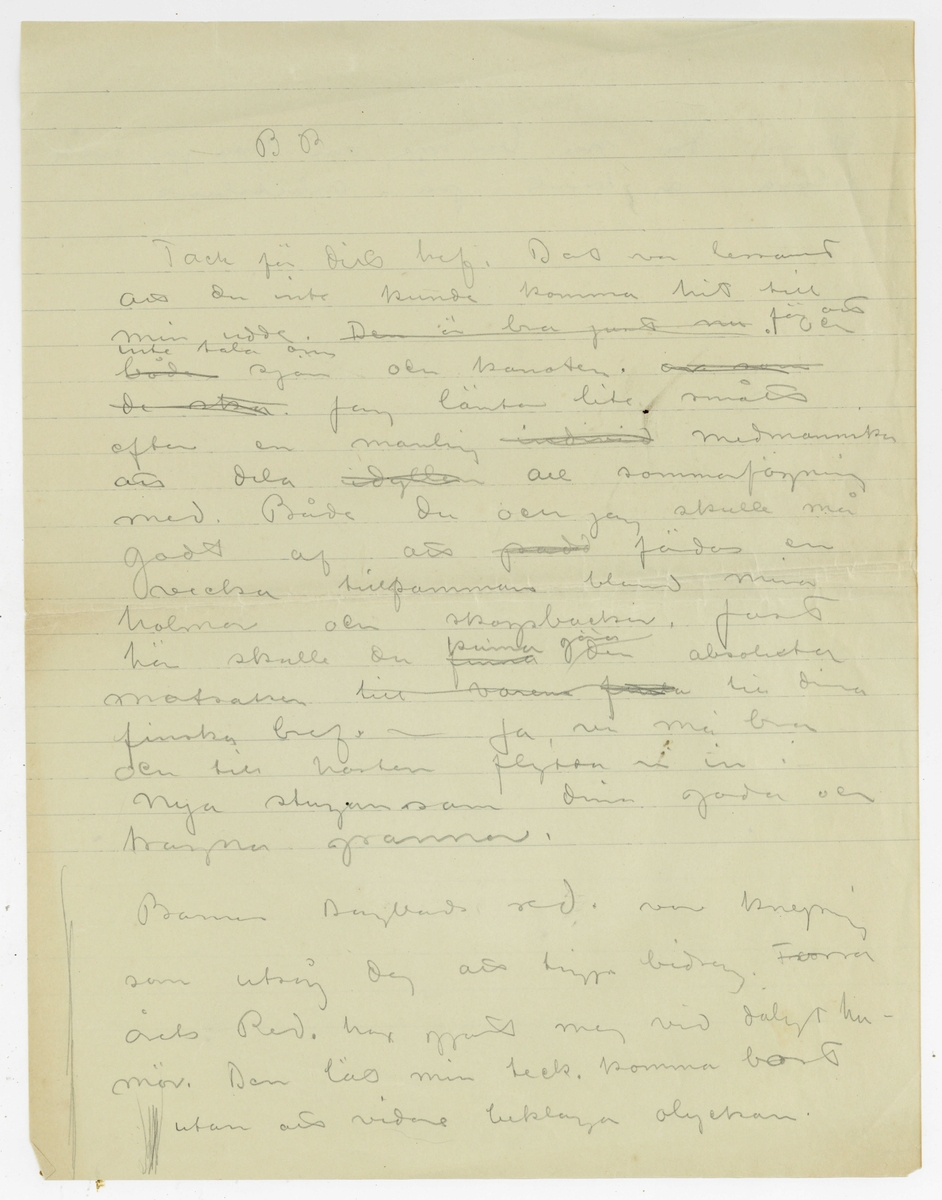 B P.
Tack för ditt bref. Det var lessamt
att du inte kunde komma hit till
min udde. Den är bra just nu. för att
inte tala om
både sjön och kanoten.
de ska. Jag längtar lite smått
efter en manlig individ medmänniska
att dela idyllen all sommarfägring
med. Både du och jag skulle må
godt af att färdas en
vecka tillsammans bland mina
holmar och skogsbackar. Just
här skulle du kunna finna den absoluta
motsatsen till till dina
finska bref. — Ja, vi må bra
och till hösten flytta vi in i
nya stugan som dina goda och
trogna grannar.
Barnens Dagblads red. var knepig
som utsåg dig att tigga bidrag. Förra
årets Red. har gjort mig vid dåligt hu-
mör. Den lät min teck. komma bort
utan att vidare beklaga olyckan.